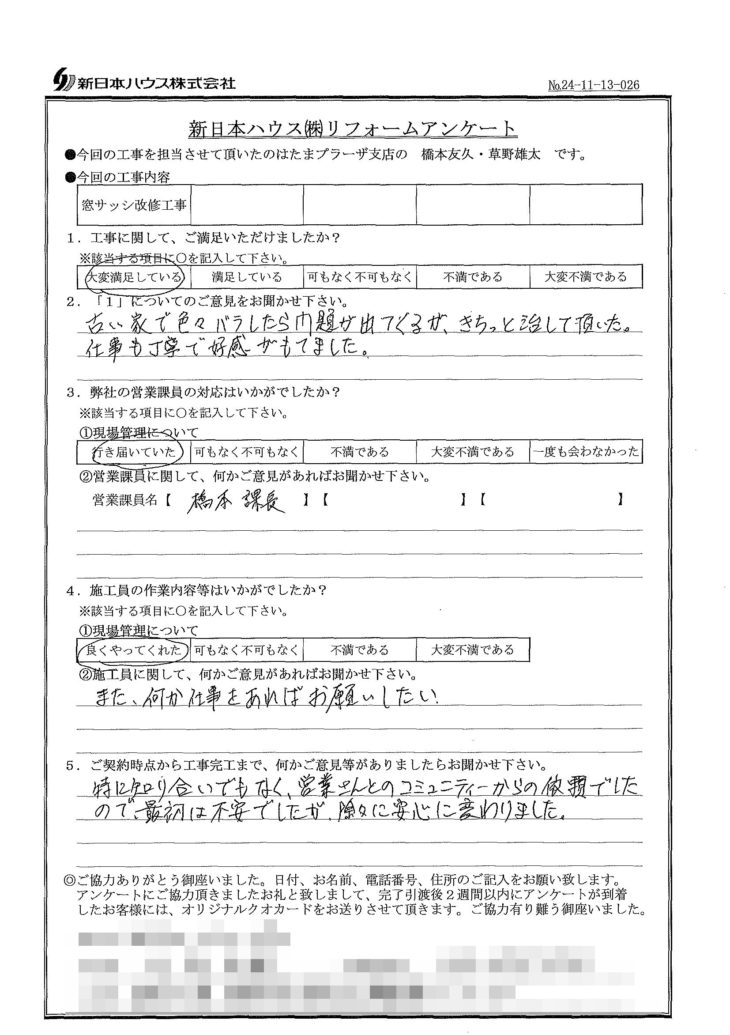 新日本ハウス株式会社
No.24-11-13-026
新日本ハウス㈱リフォームアンケート
●今回の工事を担当させて頂いたのはたまプラーザ支店の 橋本友久・草野雄太 です。
●今回の工事内容
窓サッシ改修工事
1．工事に関して、ご満足いただけましたか？
※該当する項目に○を記入して下さい。
大変満足している 満足している 可もなく不可もなく 不満である 大変不満である
2．「1」についてのご意見をお聞かせ下さい。
古い家で色々バラしたら問題が出てくるが、きちっと治して頂いた。
仕事も丁寧で好感がもてました。
3．弊社の営業課員の対応はいかがでしたか？
※該当する項目に○を記入して下さい。
①現場管理について
行き届いていた 可もなく不可もなく 不満である 大変不満である 一度も会わなかった
②営業課員に関して、何かご意見があればお聞かせ下さい。
営業課員名【 橋本 課長 】【 】【 】
4．施工員の作業内容等はいかがでしたか？
※該当する項目に○を記入して下さい。
①現場管理について
良くやってくれた 可もなく不可もなく 不満である 大変不満である
②施工員に関して、何かご意見があればお聞かせ下さい。
また、何か仕事をあればお願いしたい
5．ご契約時点から工事完工まで、何かご意見等がありましたらお聞かせ下さい。
特に知り合いでもなく、営業さんとのコミュニティーからの依頼でした
ので、最初は不安でしたが、除々に安心に変わりました。
◎ご協力ありがとう御座いました。日付、お名前、電話番号、住所のご記入をお願い致します。
アンケートにご協力頂きましたお礼と致しまして、完了引渡後2週間以内にアンケートが到着
したお客様には、オリジナルクオカードをお送りさせて頂きます。ご協力有り難う御座いました。